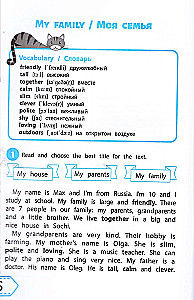 MY FAMILY / МОЯ СЕМЬЯ
Vocabulary / Словарь
friendly дружелюбный
tall высокий
together вместе
calm спокойный
slim стройный
clever умный
polite вежливый
shy стеснительный
loving нежный
outdoors на открытом воздухе
1 Read and choose the best title for the text.
My house My parents My family
My name is Max and I'm from Russia. I'm 10 and I
study at school. My family is large and friendly. There
are 7 people in our family: my parents, grandparents
and a little brother. We live together in a big and
nice house in Sochi.
My grandparents are very kind. Their hobby is
farming. My mother's name is Olga. She is slim,
polite and loving. She is a music teacher. She can
play the piano and sing very nice. My father is a
doctor. His name is Oleg. He is tall, calm and clever.